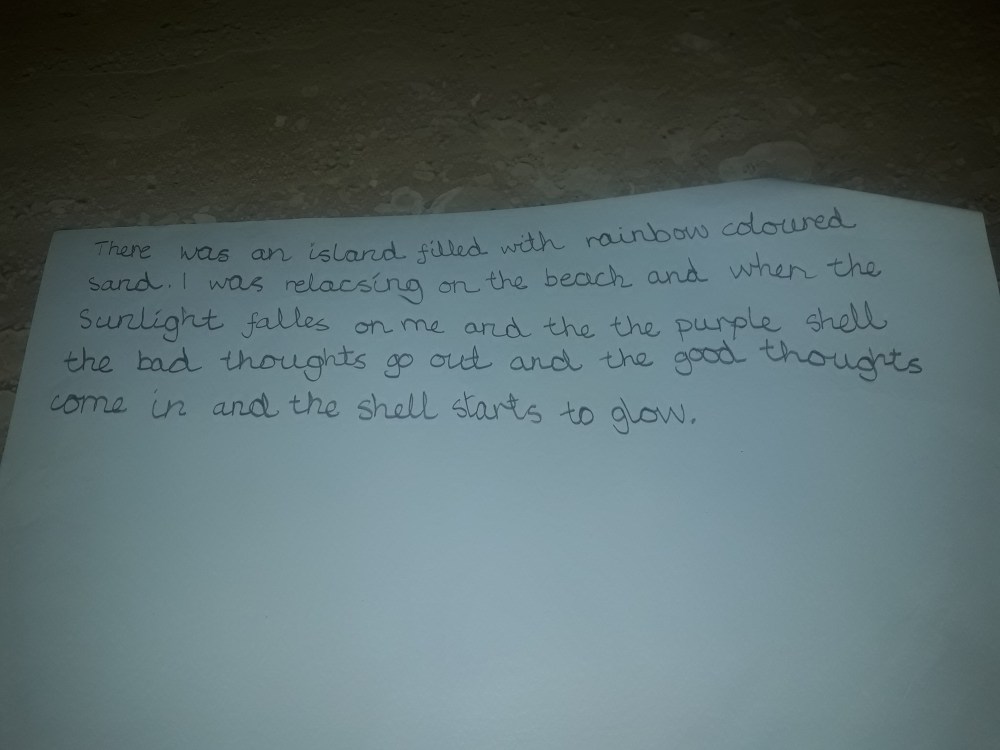 There was an island filled with rainbow coloured
sand. I was relacsing on the beach and when the
sunlight falles on me and the the purple shell
the bad thoughts go out and the good thoughts
come in and the shell starts to glow.